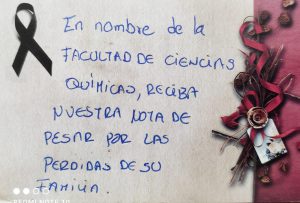 En nombre de la
FACULTAD DE CIENCIAS
QUÍMICAS, RECIBA
NUESTRA NOTA DE
PESAR POR LAS
PERDIDAS DE SU
FAMILIA.